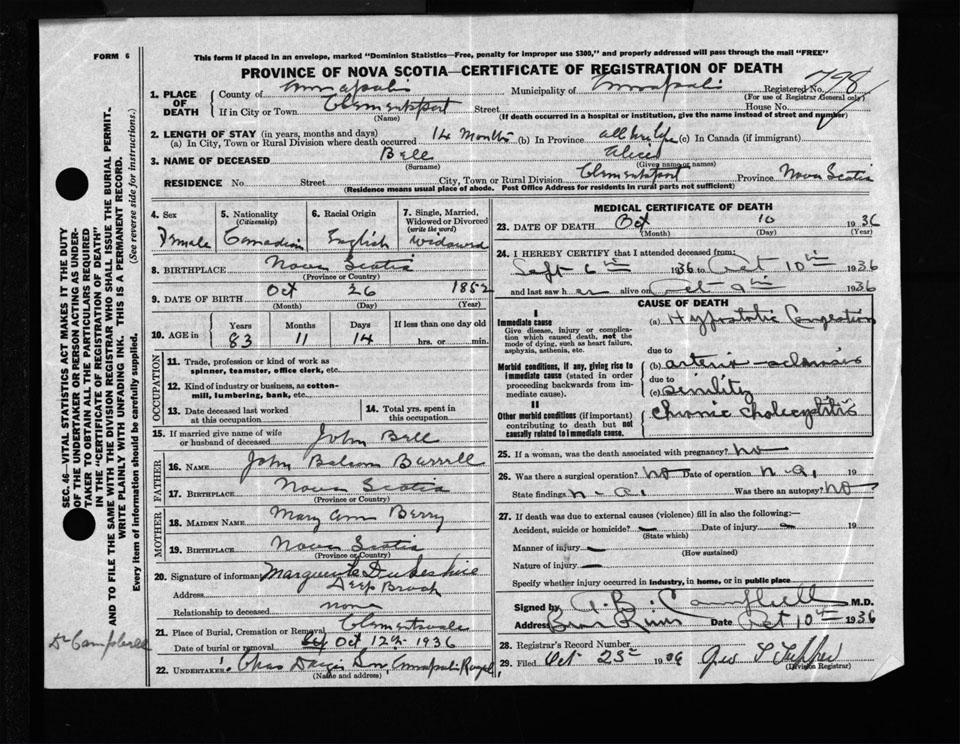 FORM 6
This form if placed in an envelope, marked "Dominion Statistics—Free, penalty for improper use $300," and properly addressed will pass through the mail "FREE"
PROVINCE OF NOVA SCOTIA—CERTIFICATE OF REGISTRATION OF DEATH
1. PLACE OF DEATH
County of Annapolis Municipality of Annapolis Registered No. 798
(For use of Registrar General only)
If in City or Town Clementsport Street House No.
(Name) (If death occurred in a hospital or institution, give the name instead of street and number)
2. LENGTH OF STAY (in years, months and days)
(a) In City, Town or Rural Division where death occurred 14 Months (b) In Province all her life (c) In Canada (if immigrant)
3. NAME OF DECEASED Bell Alice
(Surname) (Given name or names)
RESIDENCE No Street City, Town or Rural Division Clementsport Province Nova Scotia
(Residence means usual place of abode. Post Office Address for residents in rural parts not sufficient)
4. Sex Female
5. Nationality (Citizenship) Canadian
6. Racial Origin English
7. Single, Married, Widowed or Divorced (write the word) Widowed
8. BIRTHPLACE Nova Scotia
(Province or Country)
9. DATE OF BIRTH Oct 26 1852
(Month) (Day) (Year)
10. AGE in Years Months Days If less than one day old
83 11 14 hrs. or min.
OCCUPATION
11. Trade, profession or kind of work as spinner, teamster, office clerk, etc.
12. Kind of industry or business, as cotton-mill, lumbering, bank, etc.
13. Date deceased last worked at this occupation
14. Total yrs. spent in this occupation
15. If married give name of wife or husband of deceased John Bell
FATHER
16. NAME John Balsom Burrell
17. BIRTHPLACE Nova Scotia
(Province or Country)
MOTHER
18. MAIDEN NAME Mary Ann Berry
19. BIRTHPLACE Nova Scotia
(Province or Country)
20. Signature of informant Marguerite Dukeshire
Address Deep Brook
Relationship to deceased none
21. Place of Burial, Cremation or Removal Clementsvale
Date of burial or removal Oct 12th 1936
22. UNDERTAKER Chas Dargie Son, Annapolis Royal,
(Name and address)
MEDICAL CERTIFICATE OF DEATH
23. DATE OF DEATH Oct 10 1936
(Month) (Day) (Year)
24. I HEREBY CERTIFY that I attended deceased from:
Sept 6th 1936 to Oct 10th 1936
and last saw her alive on Oct 9th 1936
CAUSE OF DEATH
I
Immediate cause
Give disease, injury or complication which caused death, not the mode of dying, such as heart failure, asphyxia, asthenia, etc.
(a) Hypostatic Congestion
due to
Morbid conditions, if any, giving rise to immediate cause (stated in order proceeding backwards from immediate cause).
(b) arterio sclerosis
due to
(c) senility
II
Other morbid conditions (if important) contributing to death but not causally related to immediate cause.
Chronic Cholecystitis
25. If a woman, was the death associated with pregnancy? no
26. Was there a surgical operation? no Date of operation n.a. 19
State findings n.a. Was there an autopsy? no
27. If death was due to external causes (violence) fill in also the following:—
Accident, suicide or homicide? — Date of injury 19
(State which)
Manner of injury —
(How sustained)
Nature of injury —
Specify whether injury occurred in industry, in home, or in public place
Signed by A. B. Campbell M.D.
Address Bear River Date Oct 10th 1936
28. Registrar's Record Number
29. Filed Oct 23 19 Geo T Tupper
(Division Registrar)
SEC. 46—VITAL STATISTICS ACT MAKES IT THE DUTY OF THE UNDERTAKER OR PERSON ACTING AS UNDERTAKER TO OBTAIN ALL THE PARTICULARS REQUIRED IN THE "CERTIFICATE OF REGISTRATION OF DEATH"
AND TO FILE THE SAME WITH THE DIVISION REGISTRAR WHO SHALL ISSUE THE BURIAL PERMIT.
WRITE PLAINLY WITH UNFADING INK. THIS IS A PERMANENT RECORD.
Every item of information should be carefully supplied. (See reverse side for instructions.)
Dr Campbell